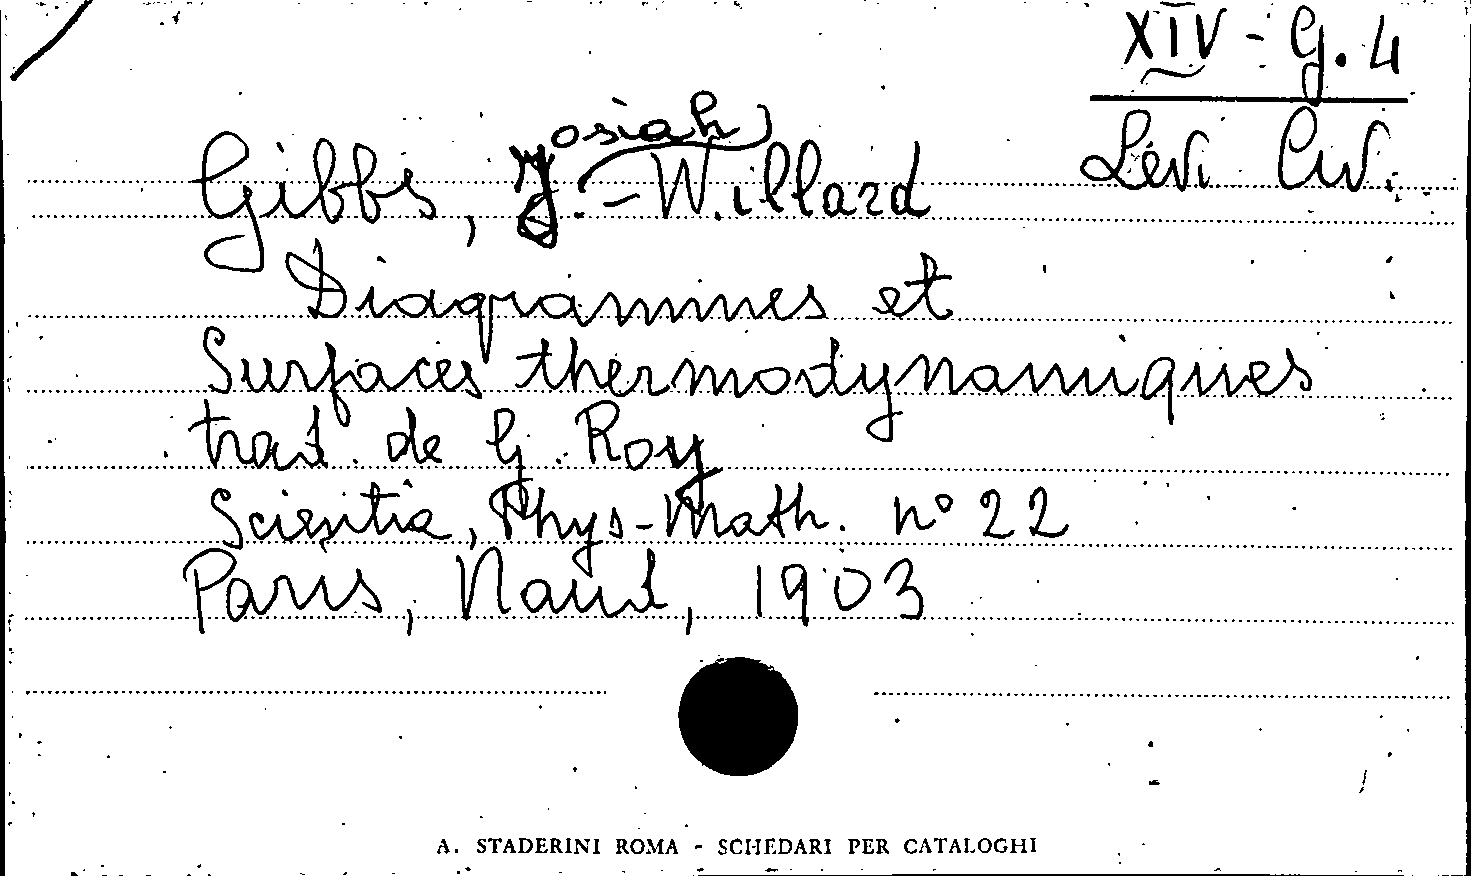 XIV - G. 4
Levi Civ.
Gibbs, Josiah - Willard
Diagrammes et
Surfaces thermodynamiques
trad. de G. Roy
Scientia, Phys-Math. n° 22
Paris, Naud, 1903
A. STADERINI ROMA - SCHEDARI PER CATALOGHI